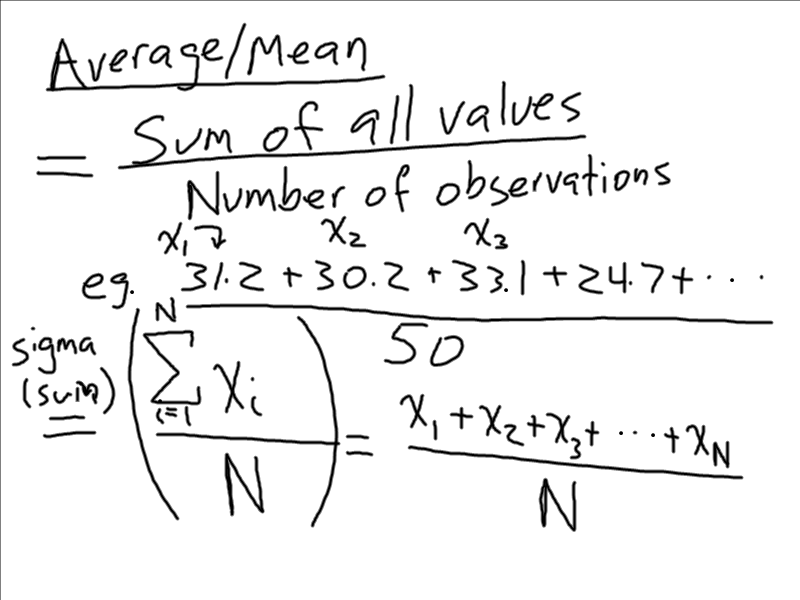 Average/Mean
= Sum of all values
Number of observations
x₁ x₂ x₃
eg. 31.2 + 30.2 + 33.1 + 24.7 + ...
50
sigma
(sum)
N
( ∑ xᵢ ) = x₁ + x₂ + x₃ + ... + x_N
i=1
N N